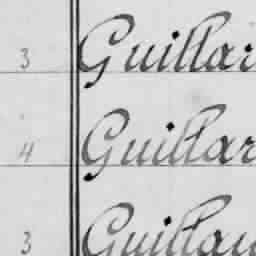 3 Guillar
4 Guillar
3 Guillau